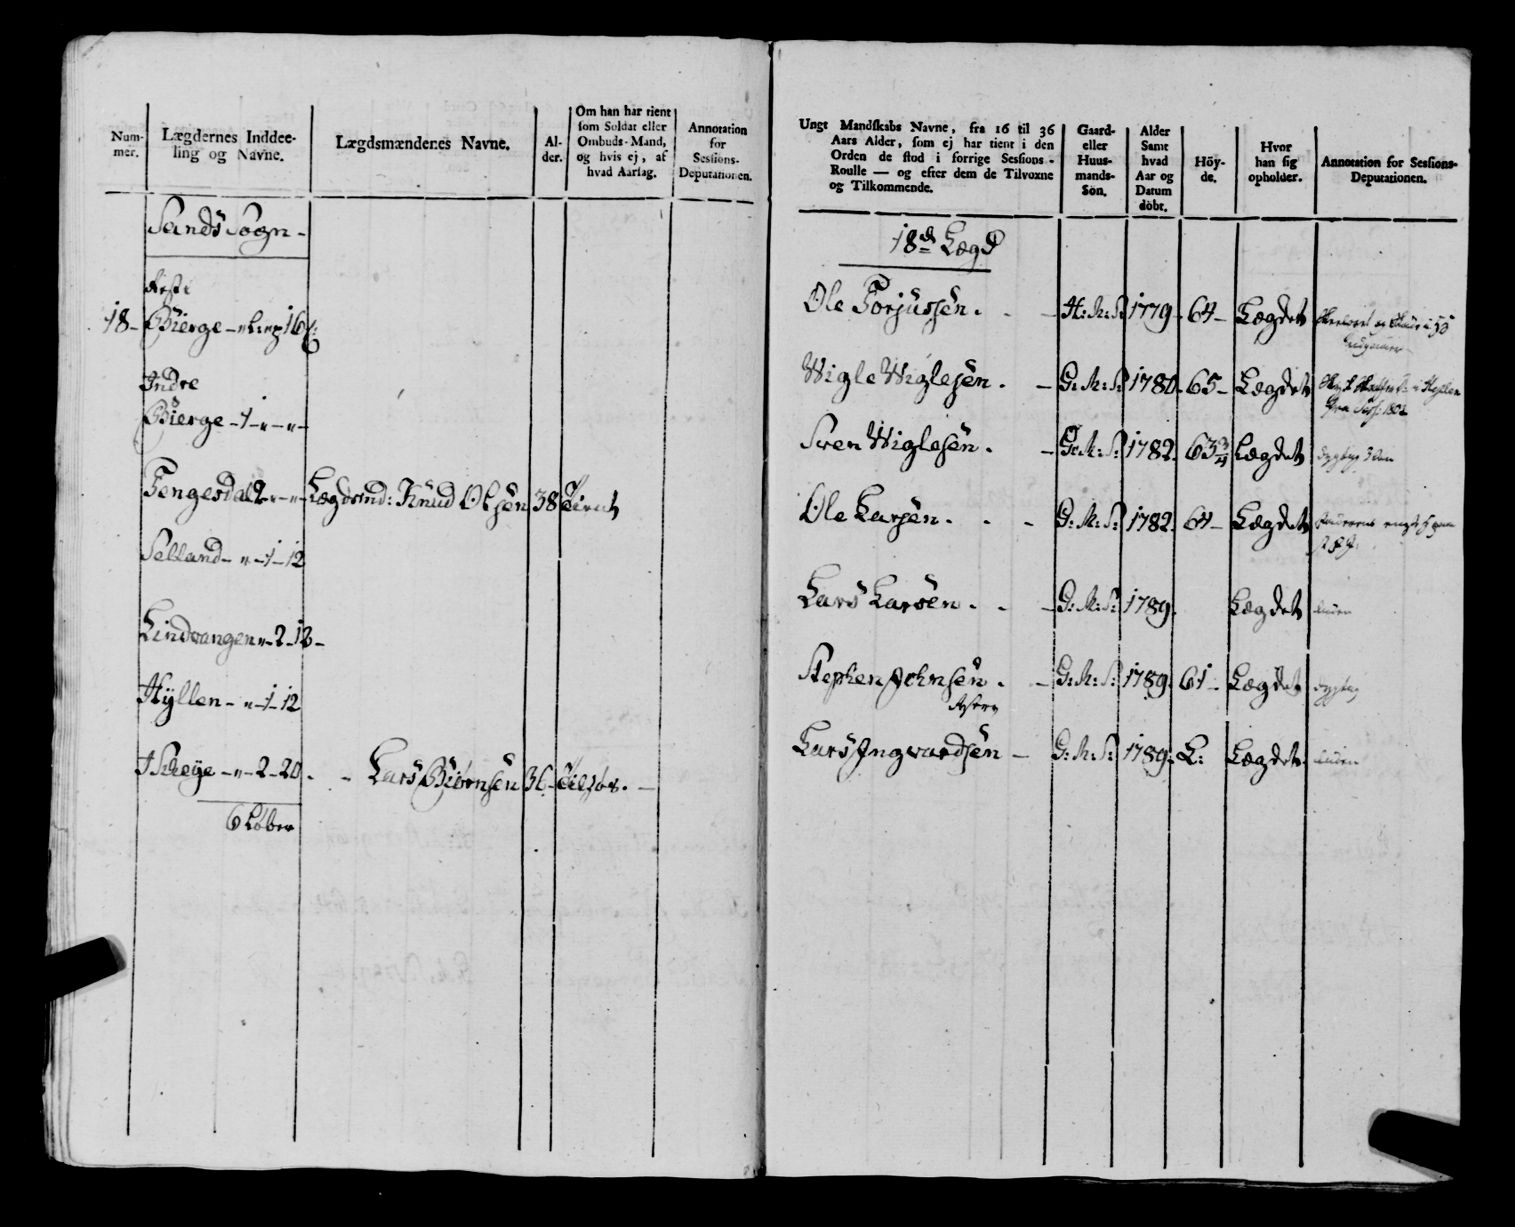 Num-
mer.
Lægdernes Inddee-
ling og Navne.
Lægdsmændenes Navne.
Al-
der.
Om han har tient
som Soldat eller
Ombuds-Mand,
og hvis ej, af
hvad Aarsag.
Annotation
for
Sessions-
Deputationen.
Sands Sogn -
18 -
Bierge
Indre
Bierge - 1 - " - " -
Fengesdal 2 - " - " - Lægdsmd: Knud Olsen 38 Tient
Selland - " - 1 - 12
Lindvangen " - 2 - 12 -
Hyllen - " - 1 - 12
Scheye - " - 2 - 20 . - Lars Biørnsen 36 -
6 Løber
Ungt Mandskabs Navne, fra 16 til 36
Aars Alder, som ej har tient i den
Orden de stod i forrige Sessions-
Roulle — og efter dem de Tilvoxne
og Tilkommende.
Gaard-
eller
Huus-
mands-
Søn.
Alder
Samt
hvad
Aar og
Datum
döbt.
Höy-
de.
Hvor
han sig
opholder.
Annotation for Sessions-
Deputationen.
18de Lægd
Ole Torjussen . - - H: M: S: 1779 - 64 - Lægdet
Wigle Wiglesen . - G: M: S: 1780 - 65 - Lægdet
1802
Sven Wiglesen . - G: M: S: 1782 . 63 3/4 Lægdet
Ole Larsen . - - G: M: S: 1782 . 64 - Lægdet
Lars Larsen . - - G: M: S: 1789 . Lægdet liden
Stephen Johnsen . - G: M: S: 1789 . 61 - Lægdet dygtig
Lars Ingvardsen - G: M: S: 1789 . L: Lægdet . liden